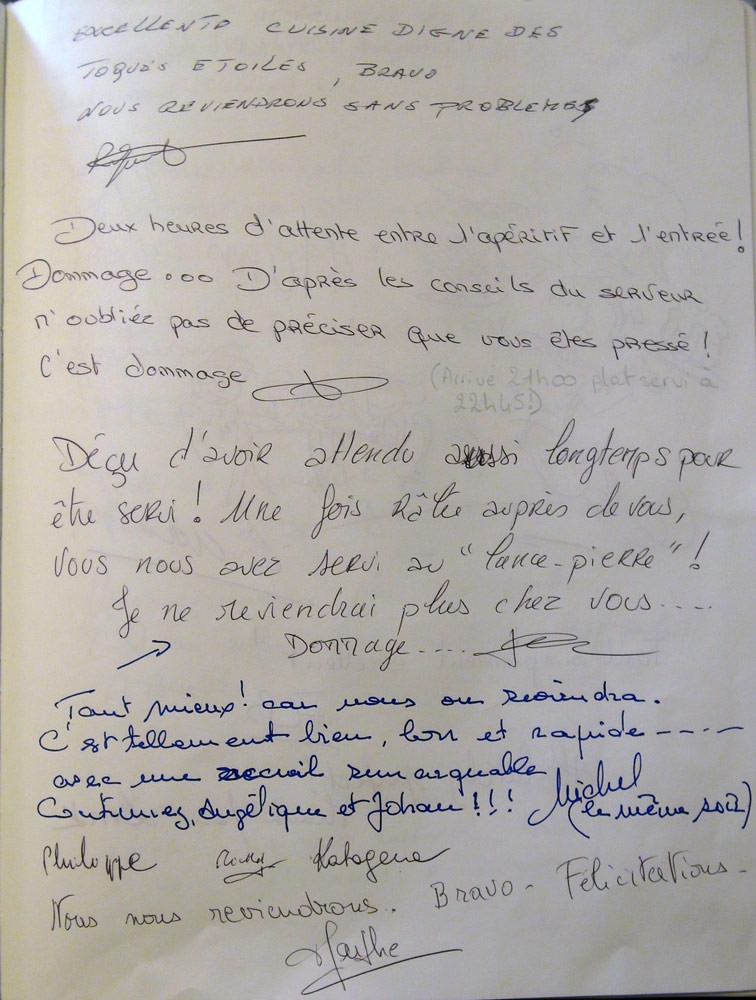 EXCELLENTE CUISINE DIGNE DES
TOQUÉS ETOILÉS, BRAVO
NOUS REVIENDRONS SANS PROBLEMES
Deux heures d'attente entre l'apéritif et l'entrée!
Dommage ... D'après les conseils du serveur
n'oubliée pas de préciser que vous êtes pressé!
C'est dommage
(Arrivé 21h00 plat servi à
22h45!)
Déçu d'avoir attendu aussi longtemps pour
être servi! Une fois râlée auprès de vous,
vous nous avez servi au "lance-pierre"!
Je ne reviendrai plus chez vous....
Dommage....
Tant mieux! car nous on reviendra.
C'est tellement bien, bon et rapide -----
avec une accueil remarquable
Continuez, Angélique et Johan!!! Michel
(le même soir)
Philippe Katagena
Nous nous reviendrons. Bravo - Félicitations -
Marthe